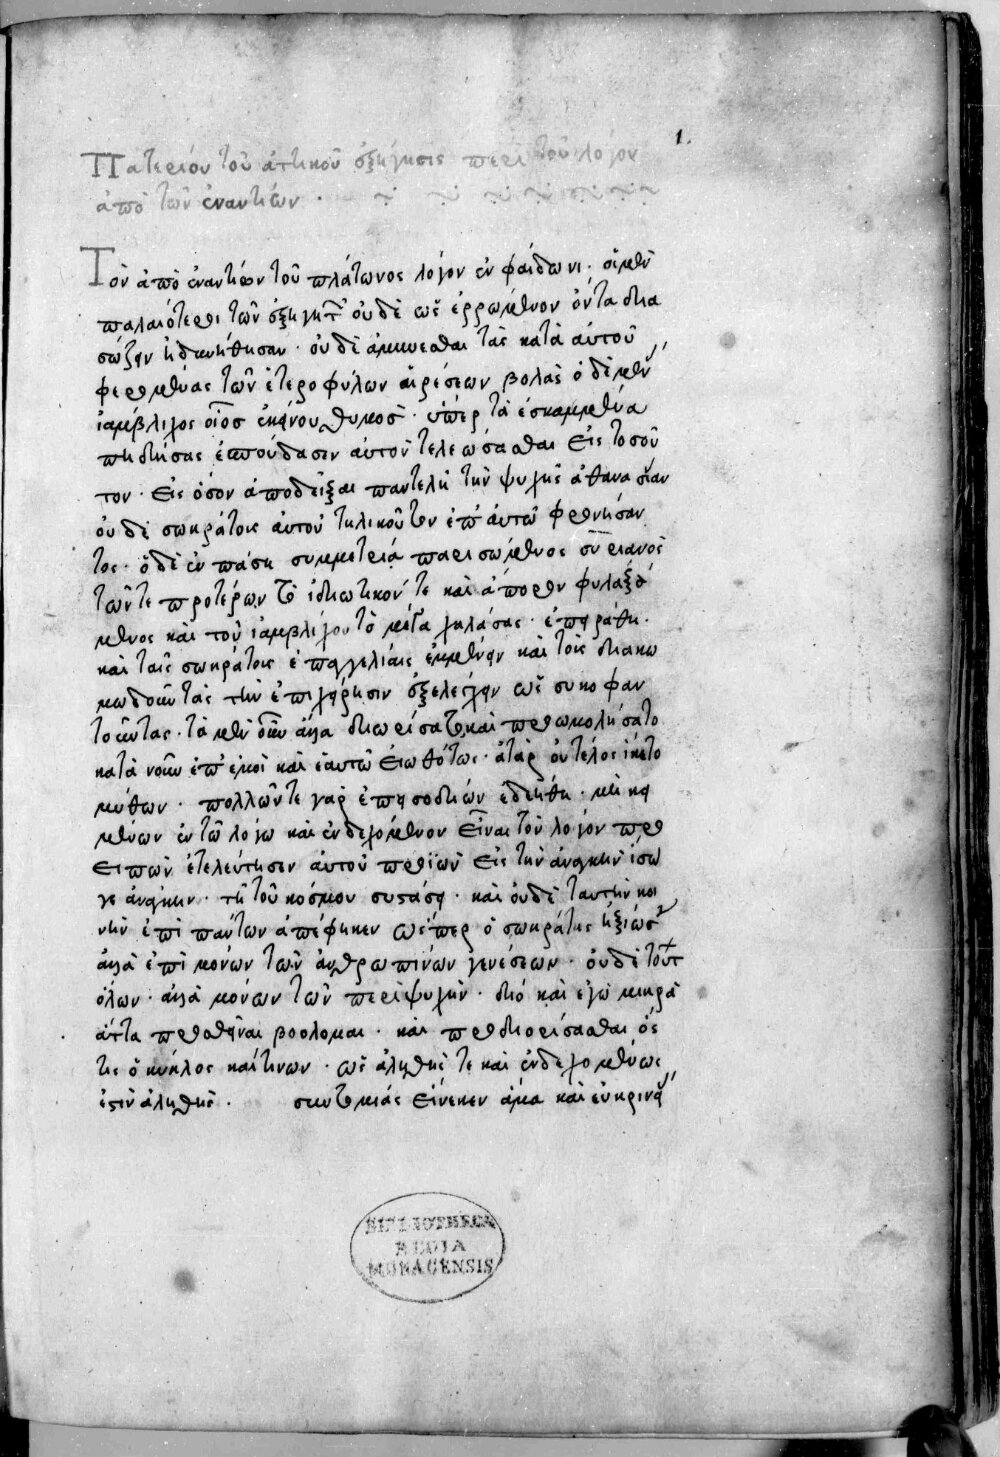 1.
Πατερίου τοῦ ἀττικοῦ ἐξήγησις περὶ τοῦ λόγου
ἀπὸ τῶν ἐναντίων ·
Τὸν ἀπὸ ἐναντίων τοῦ πλάτωνος λόγον ἐν φαίδωνι · οἱ μὲν
παλαιότεροι τῶν ἐξηγητ οὐδὲ ὡς ἐρρωμένον ὄντα δια
σώζειν ἠδυνήθησαν · οὐδὲ ἀμύνεσθαι τὰς κατὰ αὐτοῦ
φερομένας τῶν ἑτεροφύλων αἱρέσεων βολὰς ὁ δὲ μὲν
ἰάμβλιχος οἷος ἐκείνου θυμοσ · ὑπὲρ τὰ ἐσκαμμένα
πηδήσας ἐσπούδασεν αὐτὸν τελεώσασθαι εἰς τοσοῦ
τον · εἰς ὅσον ἀποδεῖξαι παντελῆ τὴν ψυχῆς ἀθανασίαν
οὐδὲ σωκράτους αὐτοῦ τηλικοῦτον ἐπ' αὐτῶ φρονήσαν
τος · ὁ δὲ ἐν πάση συμμετρία παρισωμένος συριανὸς
τῶν τε προτέρων τὸ ἰδιωτικόν τε καὶ ἄπορον φυλαξά
μενος καὶ τοῦ ἰαμβλίχου τὸ μέγα χαλάσας · ἐπειράθη ·
καὶ ταῖς σωκράτους ἐπαγγελίαις ἐμμένειν καὶ τοὺς διακω
μωδοῦντας τὴν ἐπιχείρησιν ἐξελέγχειν ὡς συκοφαν
τοῦντας · τὰ μὲν οὖν ἄλλα διωρίσατο καὶ προωμολήσατο
κατὰ νοῦν ἐπ' ἐμοὶ καὶ ἑαυτῶ εἰωθότως · ἀτὰρ οὐ τέλος ἵκετο
μύθων · πολλῶν τε γὰρ ἐπεισοδίων ἐδεήθη · μὴ κει
μένων ἐν τῶ λόγω καὶ ἐνδεχόμενον εἶναι τὸν λόγον προ
ειπὼν ἐτελεύτησεν αὐτοῦ προϊὼν εἰς τὴν ἀνάγκην ἴσω
γε ἀνάγκην · τῆ τοῦ κόσμου συστάσει · καὶ οὐδὲ ταύτην κοι
νὴν ἐπὶ πάντων ἀπέφηνεν ὥσπερ ὁ σωκράτης ἠξίωσε
ἀλλὰ ἐπὶ μόνων τῶν ἀνθρωπίνων γενέσεων · οὐδὲ τούτ
ὅλων · ἀλλὰ μόνων τῶν περὶ ψυχὴν · διό καὶ ἐγὼ μικρὰ
ἄττα προθεῖναι βοολομαι · καὶ προδιορίσασθαι ὅσ
τις ὁ κύκλος καὶ τίνων · ὡς ἀληθής τε καὶ ἐνδεχομένως
ἐστὶν ἀληθής · συντομίας εἵνεκεν ἅμα καὶ εὐκρινεί
BIBLIOTHECA
REGIA
MONACENSIS